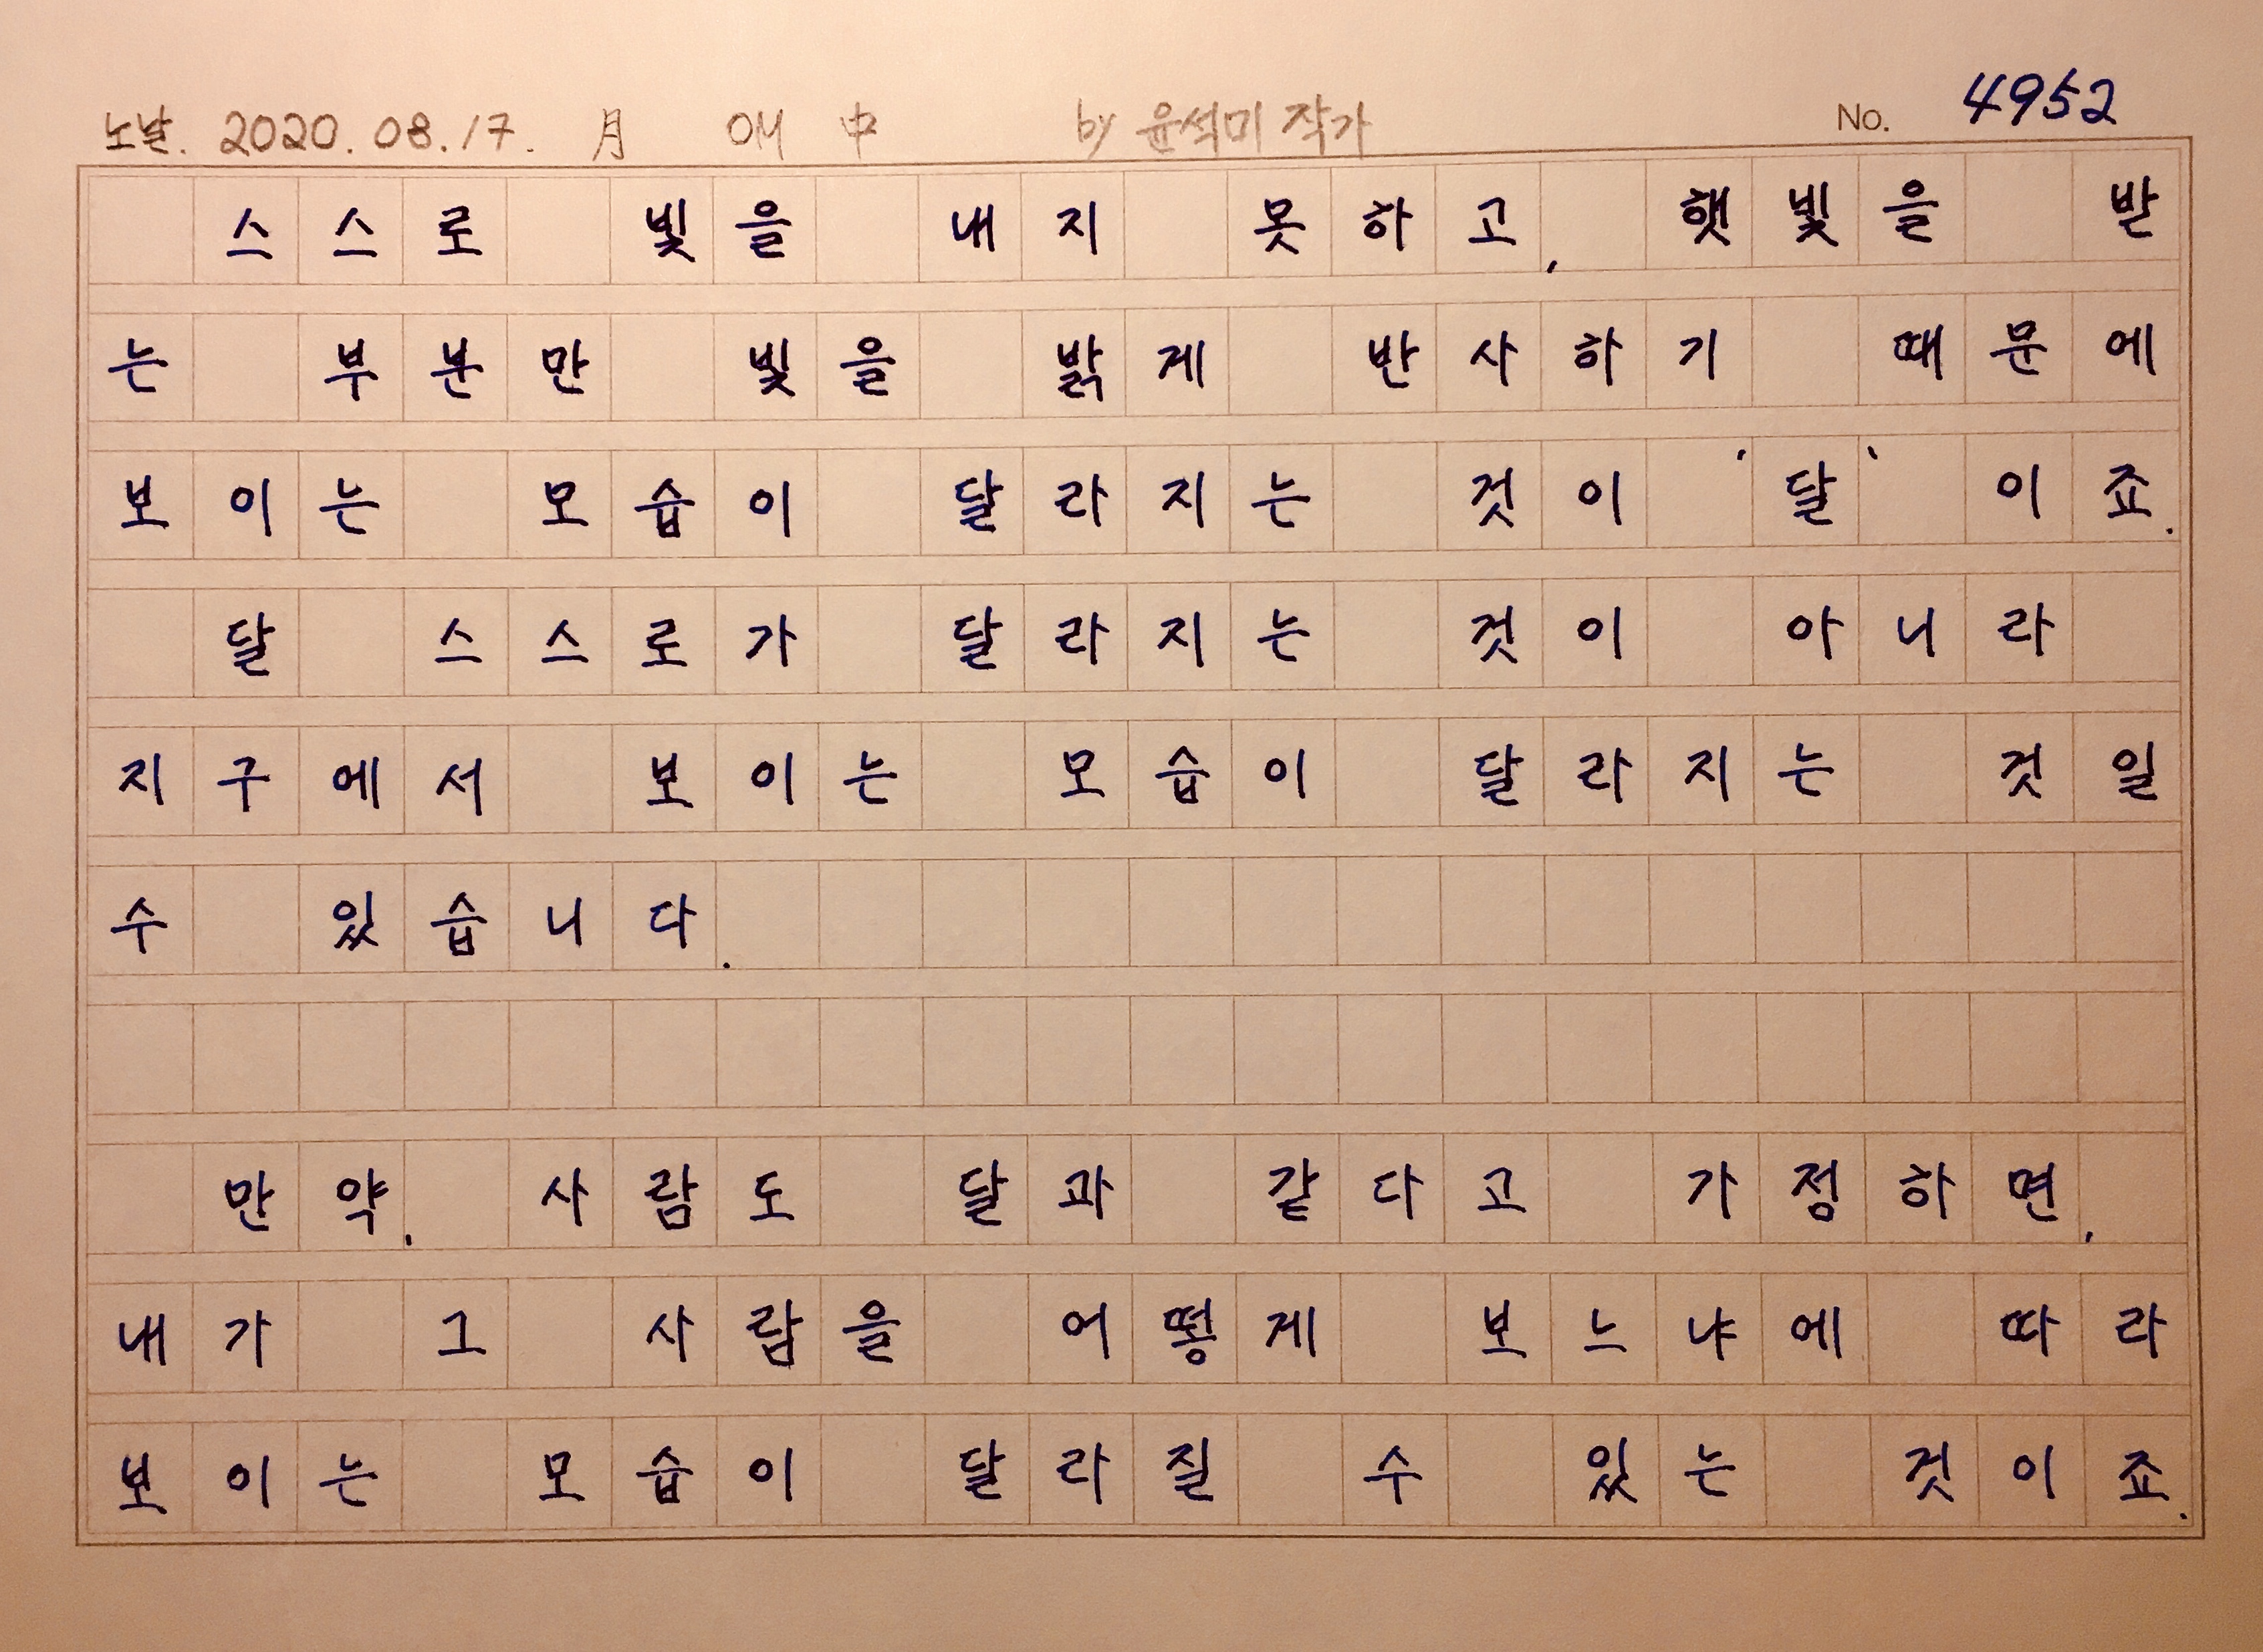 노날. 2020. 08. 17. 月 OM 中 by 윤석미 작가 No. 4952
스스로 빛을 내지 못하고, 햇빛을 받
는 부분만 빛을 밝게 반사하기 때문에
보이는 모습이 달라지는 것이 '달' 이죠.
달 스스로가 달라지는 것이 아니라
지구에서 보이는 모습이 달라지는 것일
수 있습니다.
만약, 사람도 달과 같다고 가정하면,
내가 그 사람을 어떻게 보느냐에 따라
보이는 모습이 달라질 수 있는 것이죠.